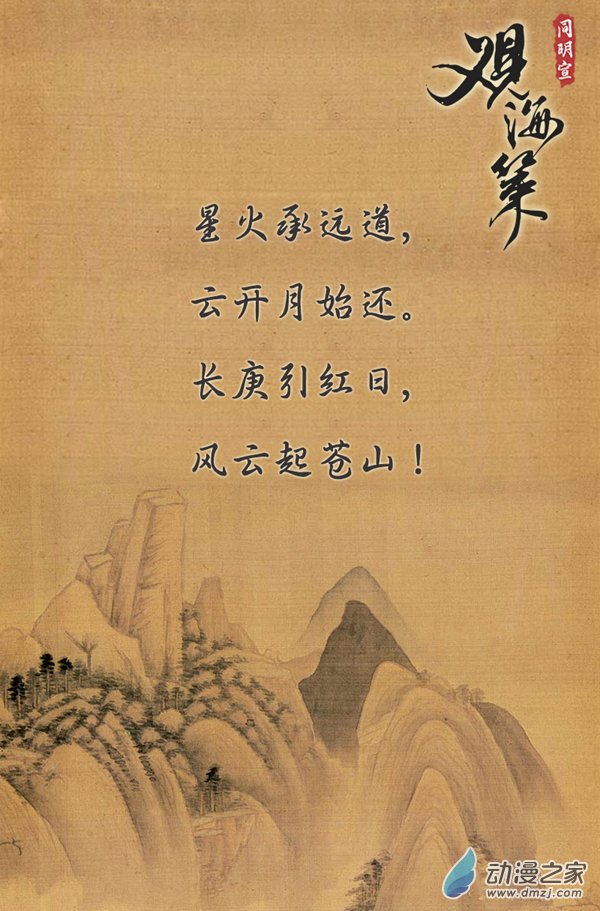 同明宣
观海策
星火承远道，
云开月始还。
长庚引红日，
风云起苍山！
动漫之家
www.dmzj.com